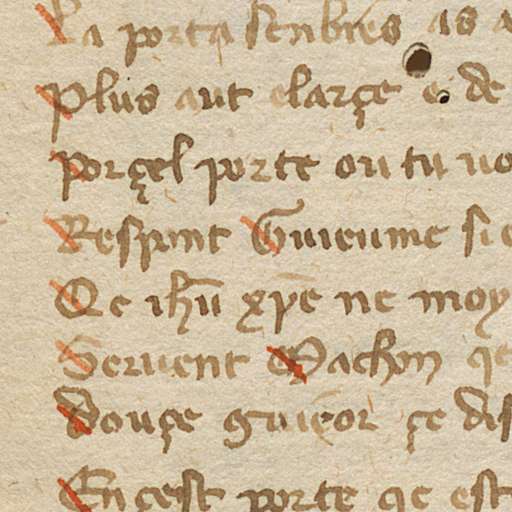 La porta senbres as a
Plus aut elarçe e de
Porçel porte ou tu uo
Respont Guieume si
Qe ihū xp̄e ne moy
Seruent Machon qe
Douçe guieor çe dis
En cest porte qe est